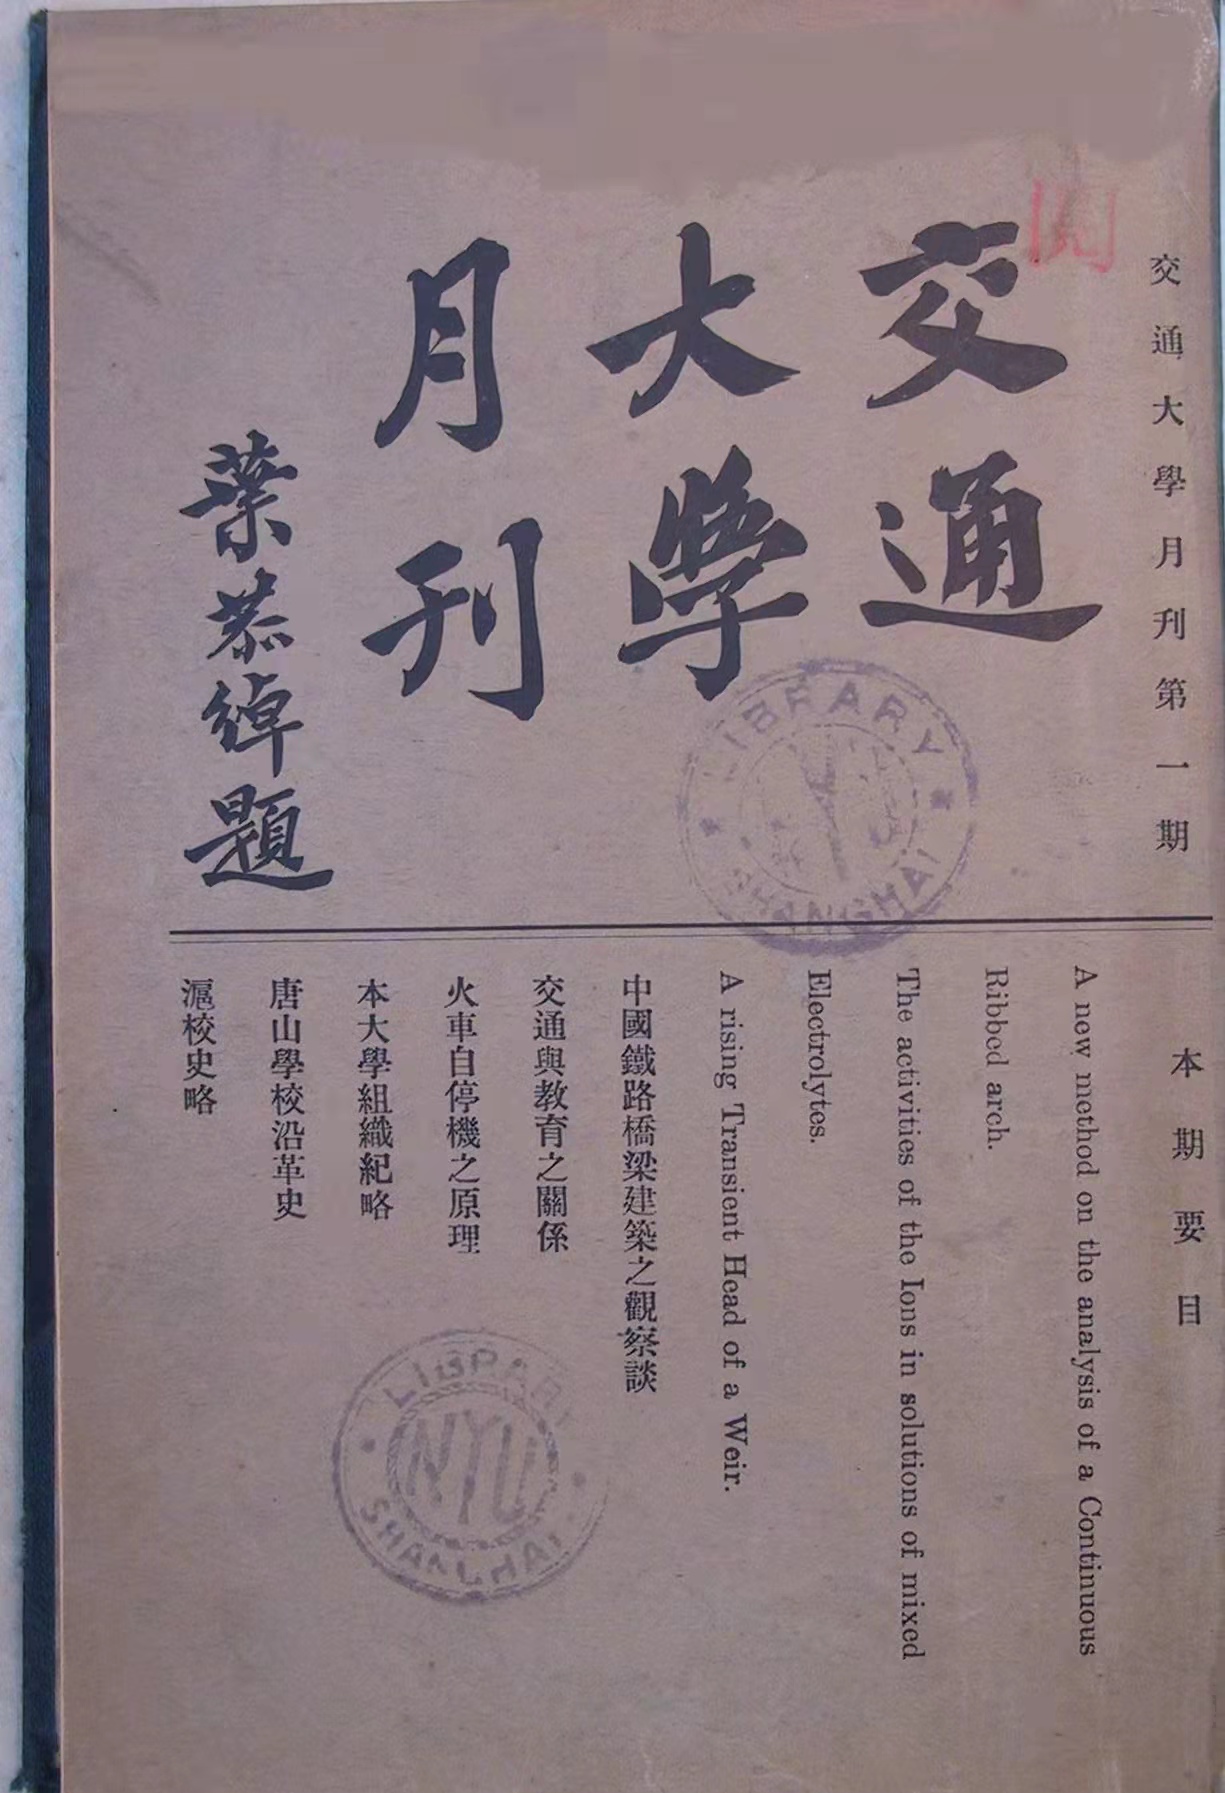 交通大學月刊第一期
交通
大學
月刊
葉恭綽題
本期要目
A new method on the analysis of a Continuous
Ribbed arch.
The activities of the Ions in solutions of mixed
Electrolytes.
A rising Transient Head of a Weir.
中國鐵路橋梁建築之觀察談
交通與教育之關係
火車自停機之原理
本大學組織紀略
唐山學校沿革史
滬校史略
LIBRARY
SHANGHAI
LIBRARY
NYU
SHANGHAI